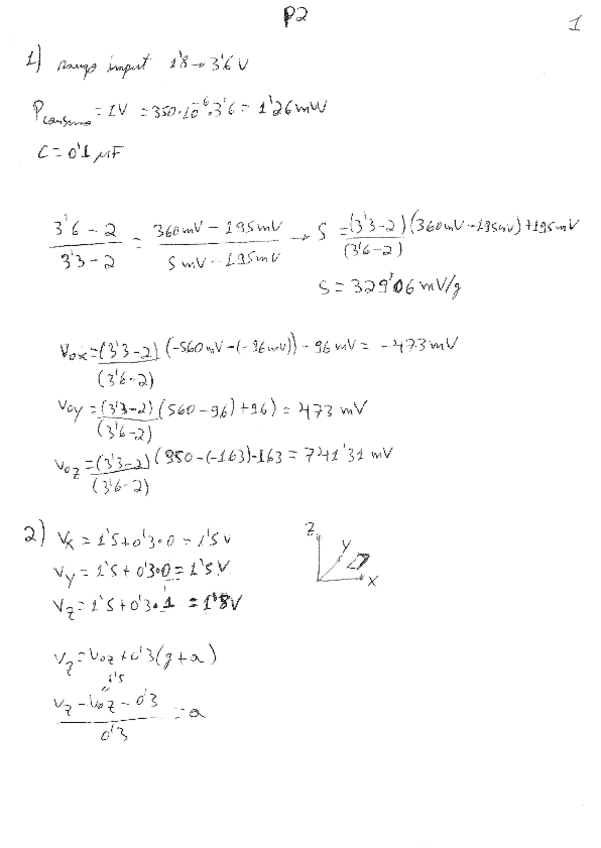 P2
1
1) rango input 1'8 → 3'6 V
Pconsumo = IV = 350·10^-6·3'6 = 1'26 mW
C = 0'1 μF
(3'6 - 2)/(3'3 - 2) = (360mV - 195mV)/(S mV - 195mV) → S = (3'3-2)/(3'6-2) (360mV - 195mV) + 195mV
S = 329'06 mV/g
Vox = (3'3-2)/(3'6-2) (-560mV - (-96mV)) - 96mV = -473mV
Voy = (3'3-2)/(3'6-2) (560 - 96) + 96) = 473 mV
Voz = (3'3-2)/(3'6-2) (950 - (-163) - 163 = 741'31 mV
2) Vx = 1'5 + 0'3·0 = 1'5V
Z
Y
X
Vy = 1'5 + 0'3·0 = 1'5V
Vz = 1'5 + 0'3·1 = 1'8V
Vz = Voz + 0'3(g + a)
1'5
"
(Vz - Voz - 0'3)/0'3 = a